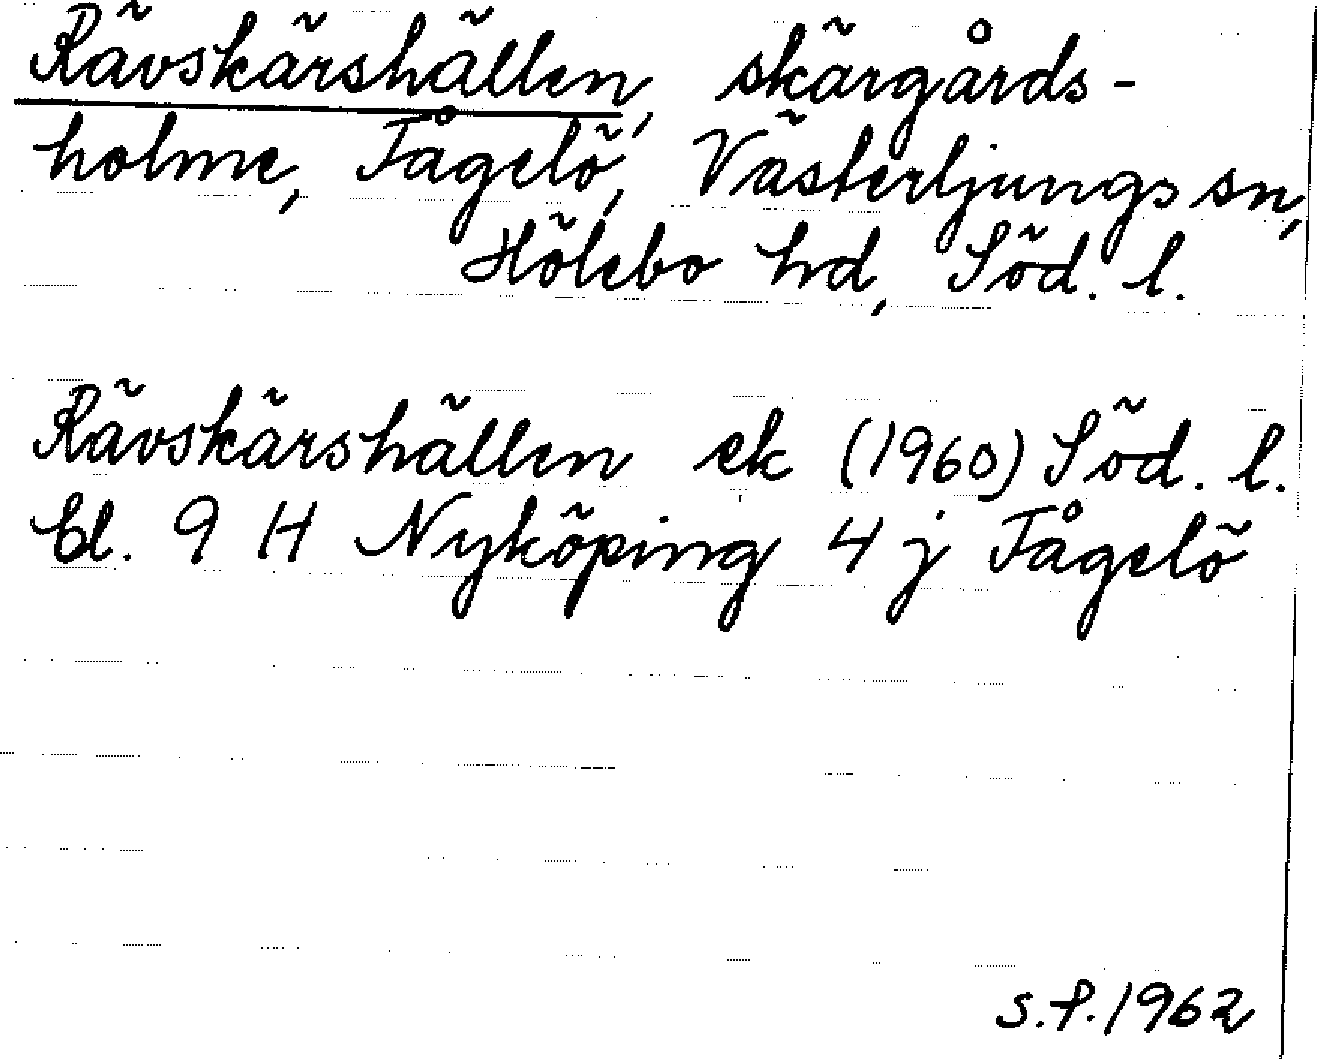 Rävskärshällen, skärgårds-
holme, Fågelö, Västerljungs sn,
Hölebo hd, Söd. l.
Rävskärshällen ek (1960) Söd. l.
bl. 9 H Nyköping 4 j Fågelö
S.P. 1962